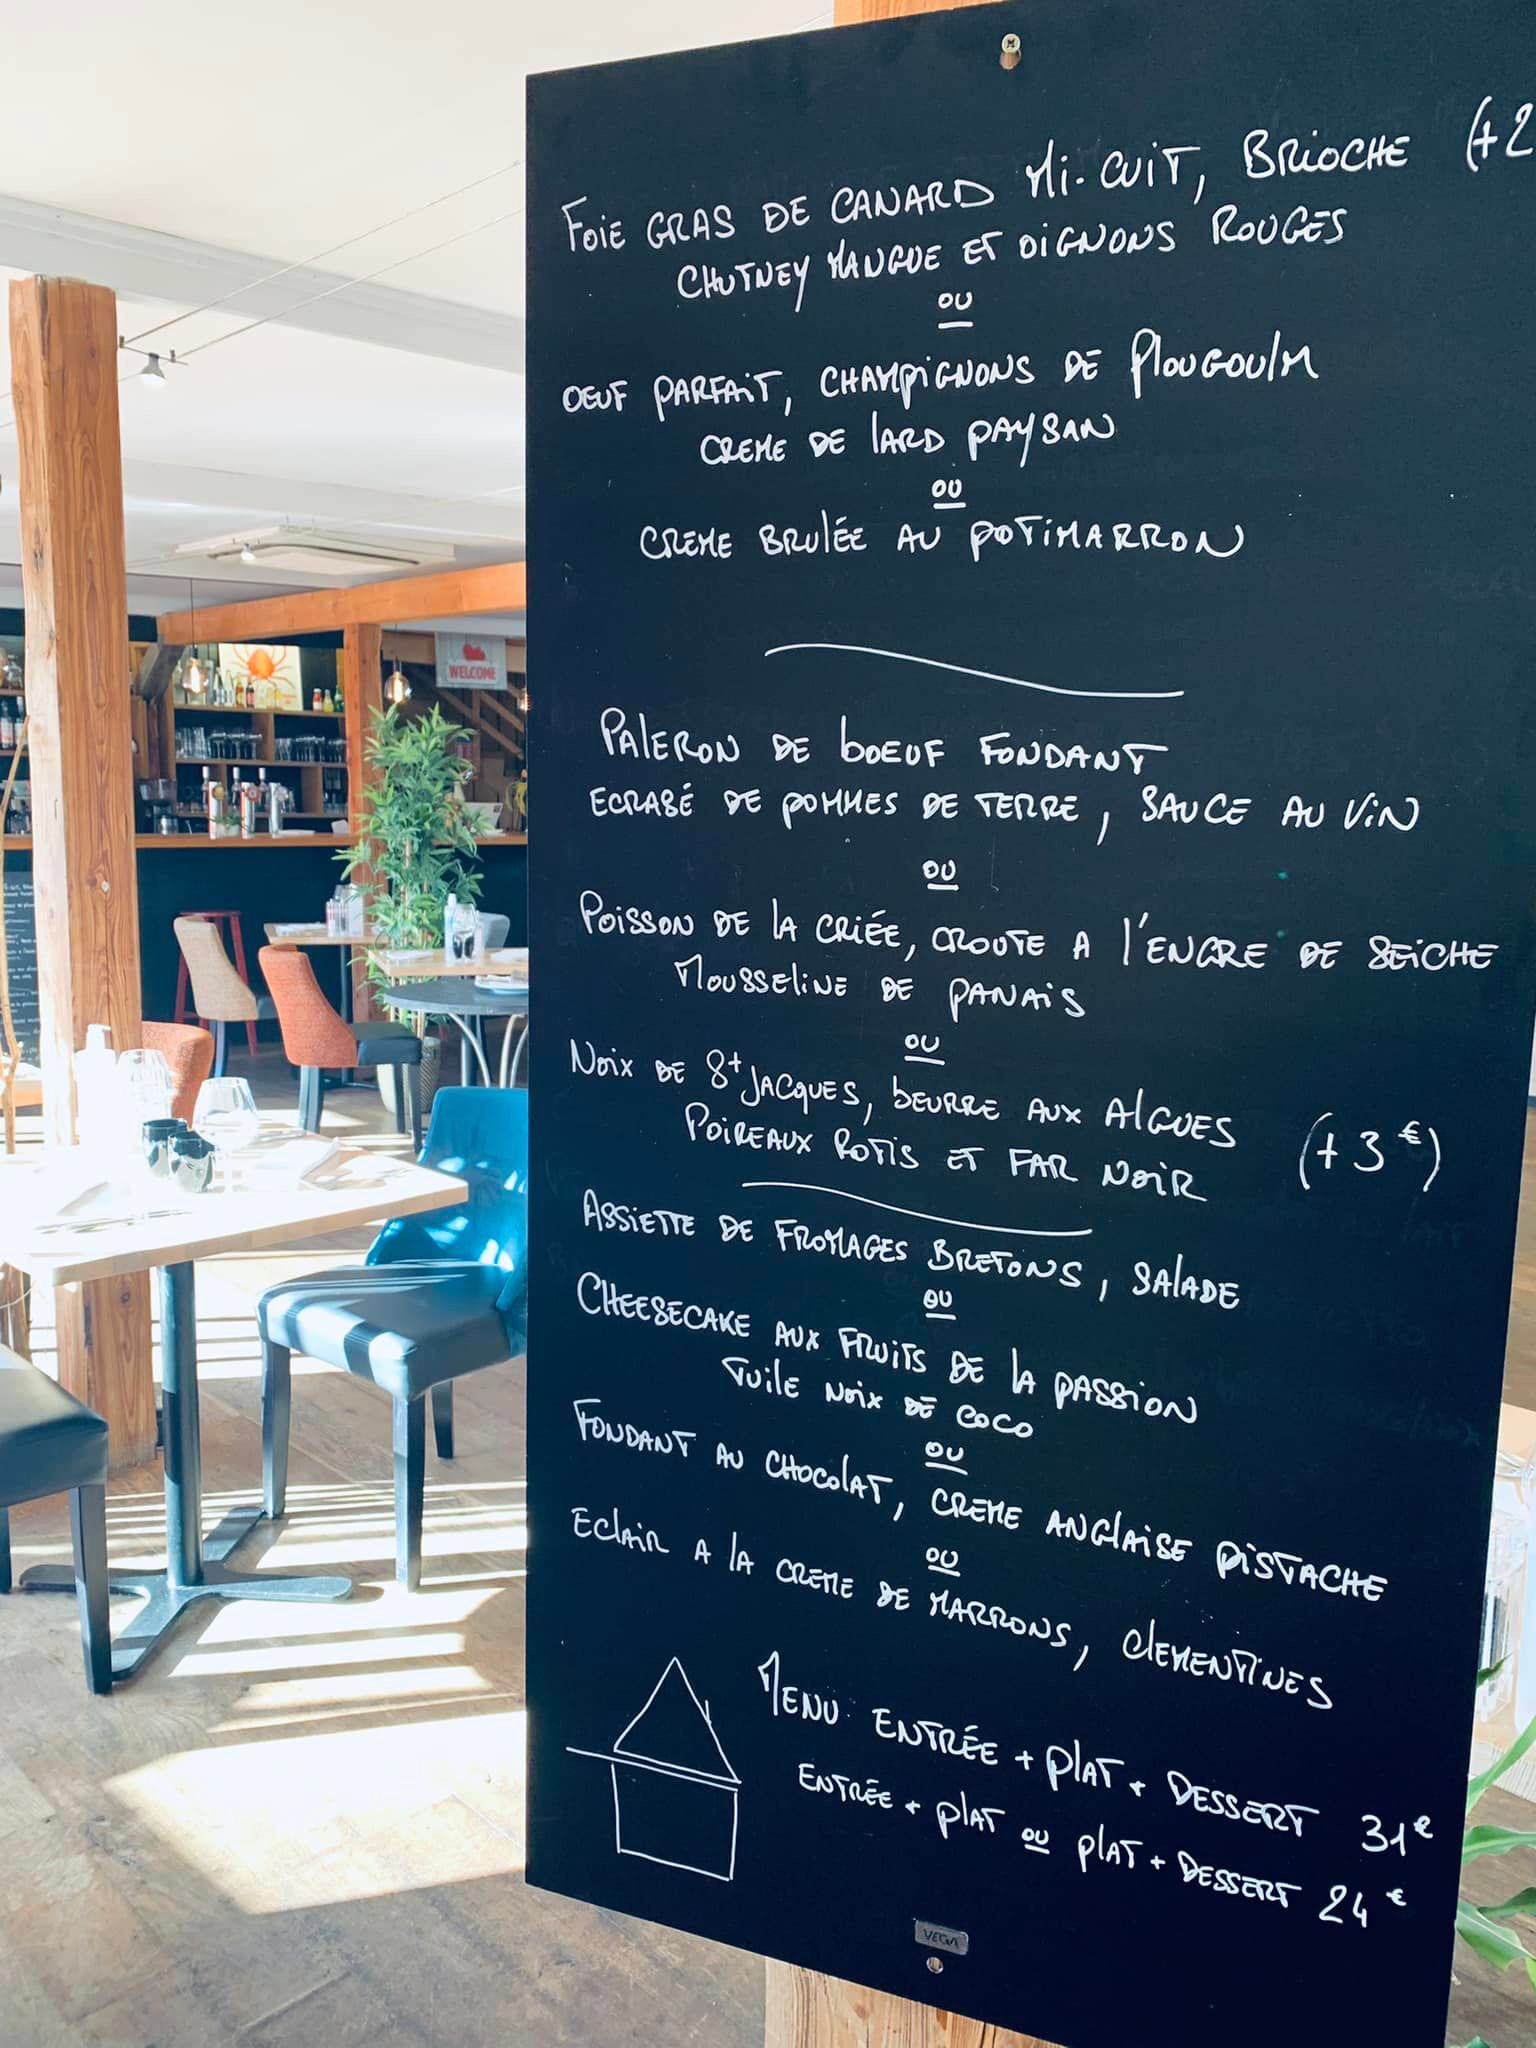 FOIE GRAS DE CANARD MI-CUIT, BRIOCHE (+2
CHUTNEY MANGUE ET OIGNONS ROUGES
OU
OEUF PARFAIT, CHAMPIGNONS DE PLOUGOULM
CREME DE LARD PAYSAN
OU
CREME BRULÉE AU POTIMARRON
PALERON DE BOEUF FONDANT
ECRASÉ DE POMMES DE TERRE, SAUCE AU VIN
OU
POISSON DE LA CRIÉE, CROUTE A L'ENCRE DE SEICHE
MOUSSELINE DE PANAIS
OU
NOIX DE St JACQUES, BEURRE AUX ALGUES
POIREAUX ROTIS ET FAR NOIR (+3€)
ASSIETTE DE FROMAGES BRETONS, SALADE
OU
CHEESECAKE AUX FRUITS DE LA PASSION
TUILE NOIX DE COCO
OU
FONDANT AU CHOCOLAT, CREME ANGLAISE PISTACHE
OU
ECLAIR A LA CREME DE MARRONS, CLEMENTINES
MENU ENTRÉE + PLAT + DESSERT 31€
ENTRÉE + PLAT OU PLAT + DESSERT 24€
VEGA
WELCOME